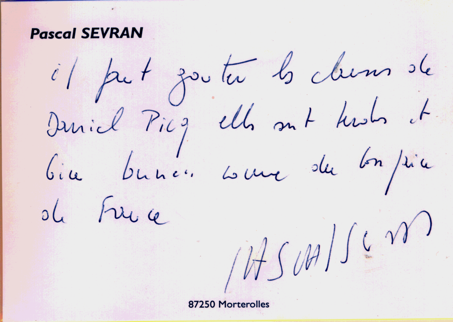 Pascal SEVRAN
il faut gouter les chansons de
Daniel Picq elles sont tendres et
bien bonnes comme du bon pain
de France
PASCAL SEVRAN
87250 Morterolles